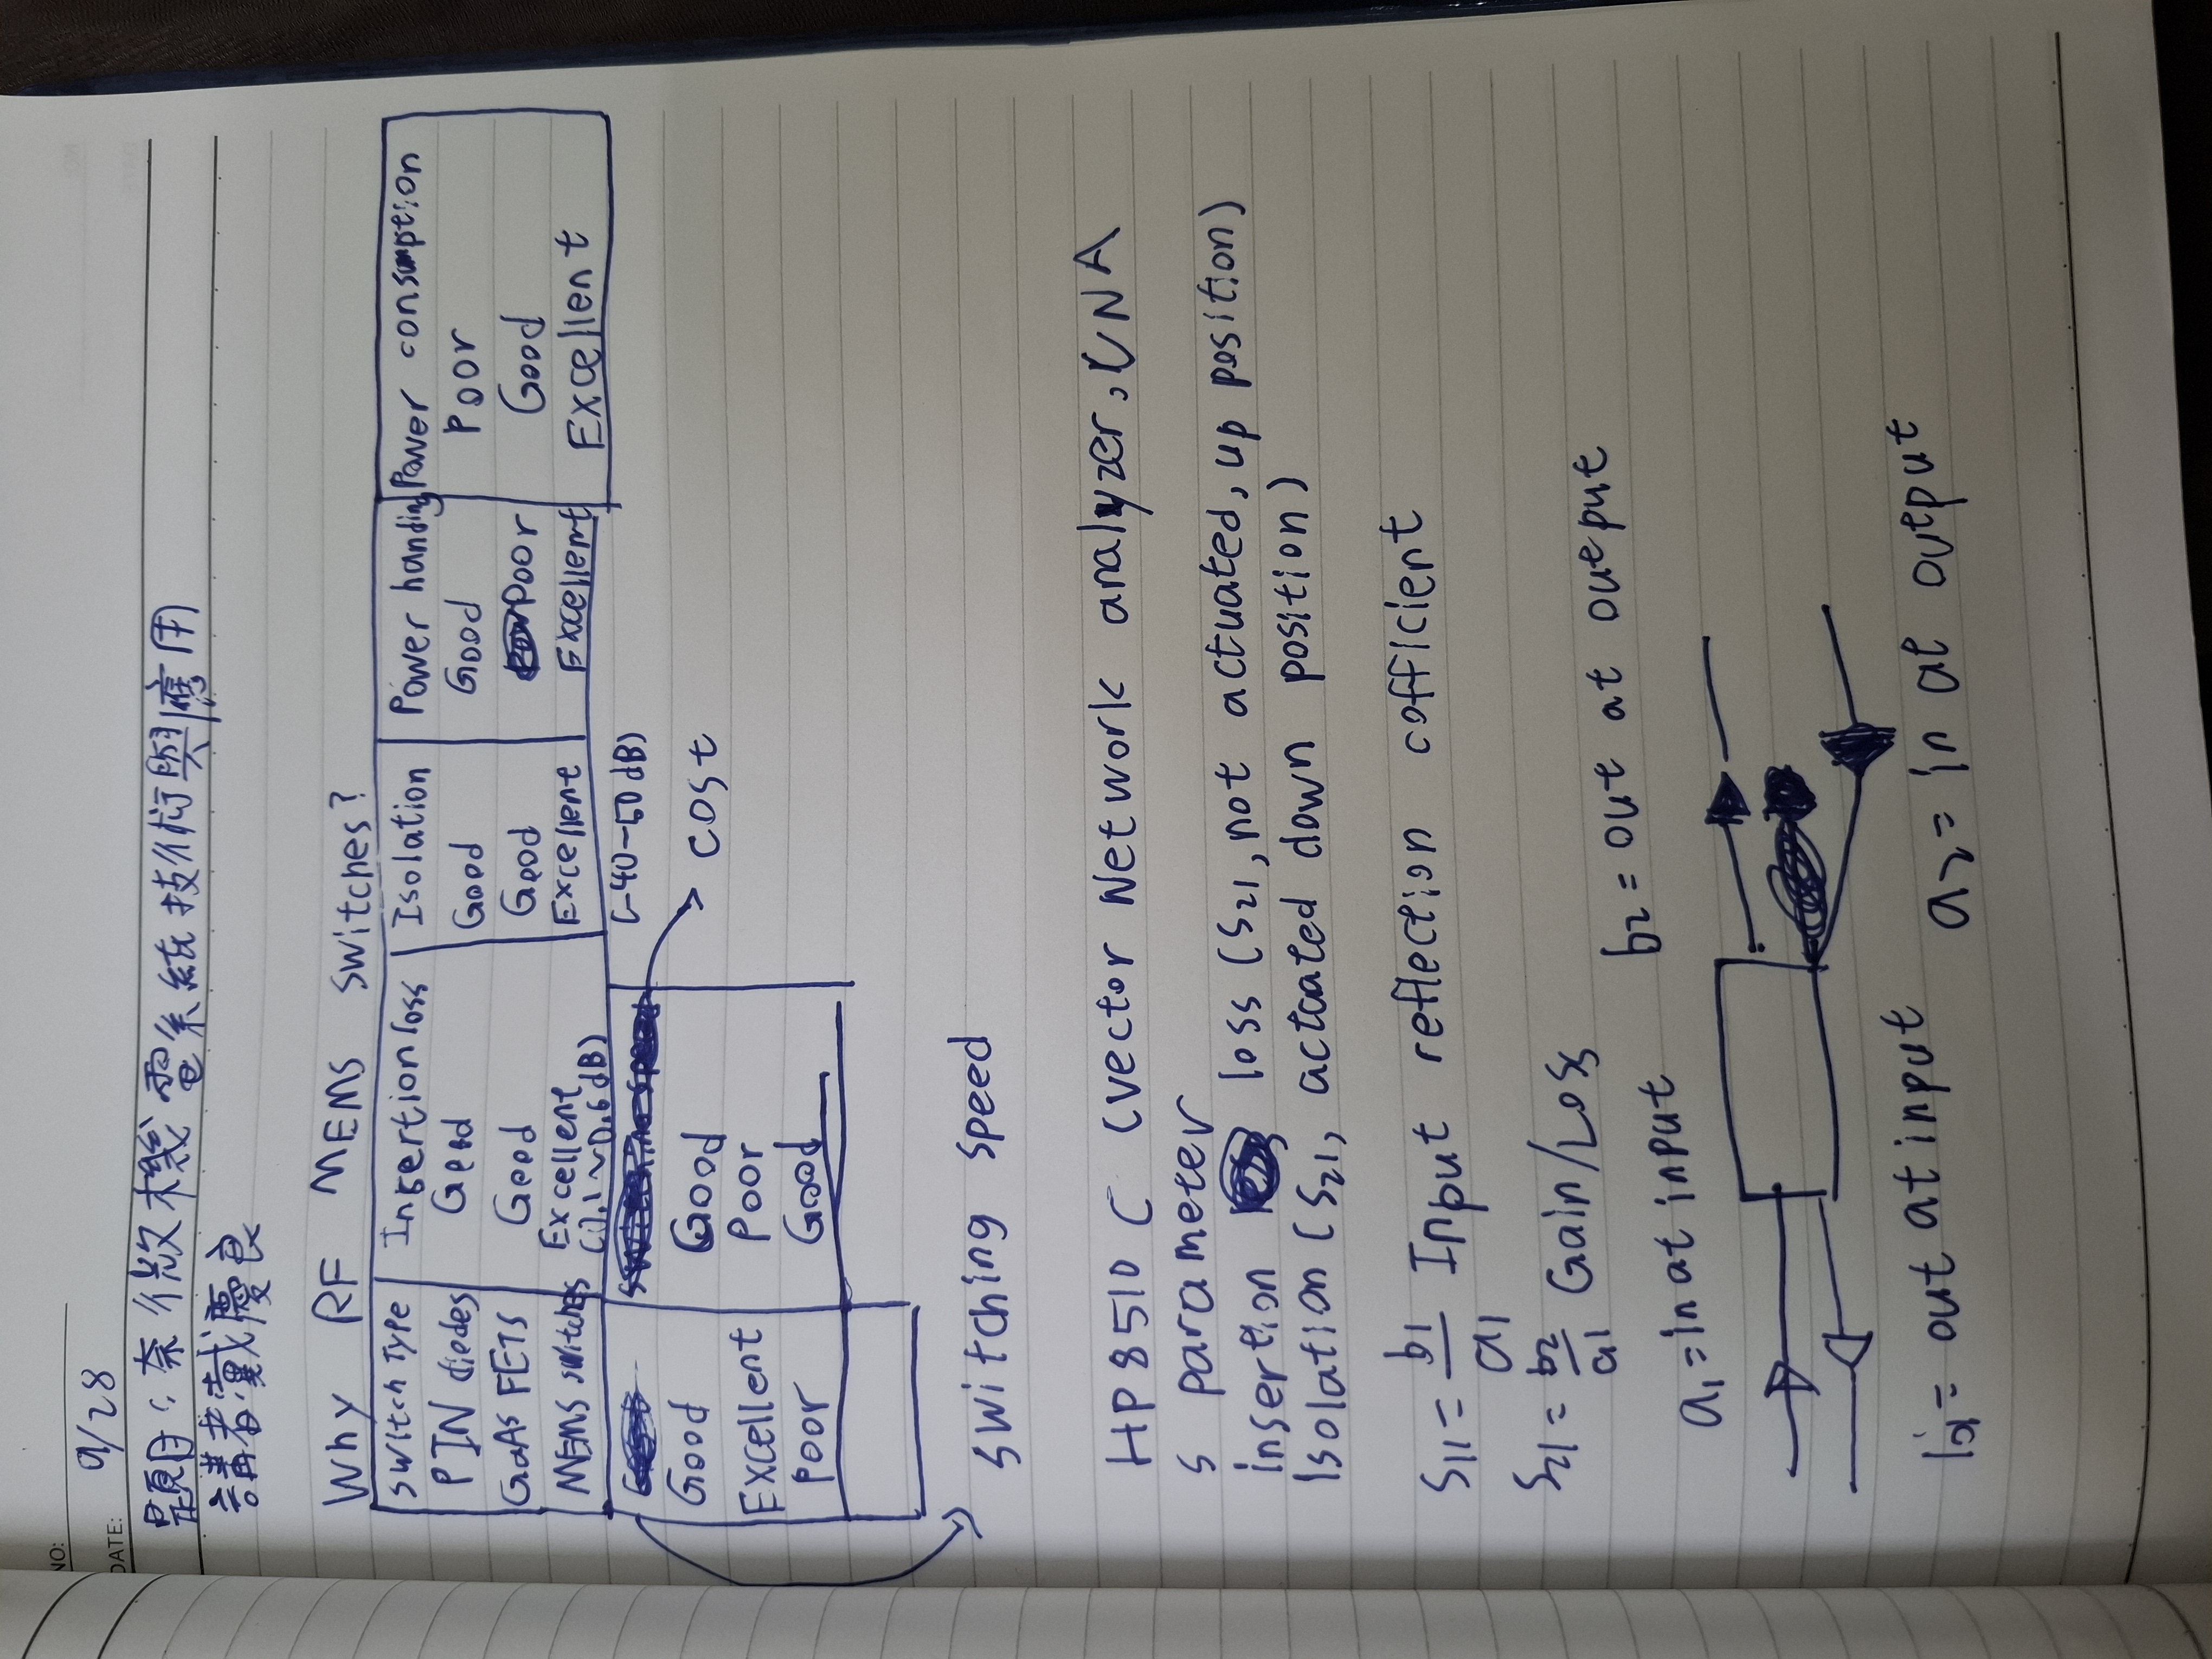 NO:
DATE: 9/28
題目:奈微機電系統技術與應用
講者:戴慶良
Why RF MEMS switches?
Switch Type Insertion loss Isolation Power handing Power consumption
PIN diodes Good Good Good Poor
GaAs FETS Good Good Poor Good
MEMS switches Excellent Excellent Excellent Excellent
(0.1~0.6dB)
(-40-50dB)
Good Good cost
Excellent Poor
Poor Good
switching speed
HP8510 C (vector Network analyzer, VNA
s parameter
insertion loss (S21, not actuated, up position)
Isolation (S21, actuated down position)
S11 = b1/a1 Input reflection cofficient
S21 = b2/a1 Gain/Loss
b2 = out at output
a1 = in at input
b1 = out at input
a2 = in at output